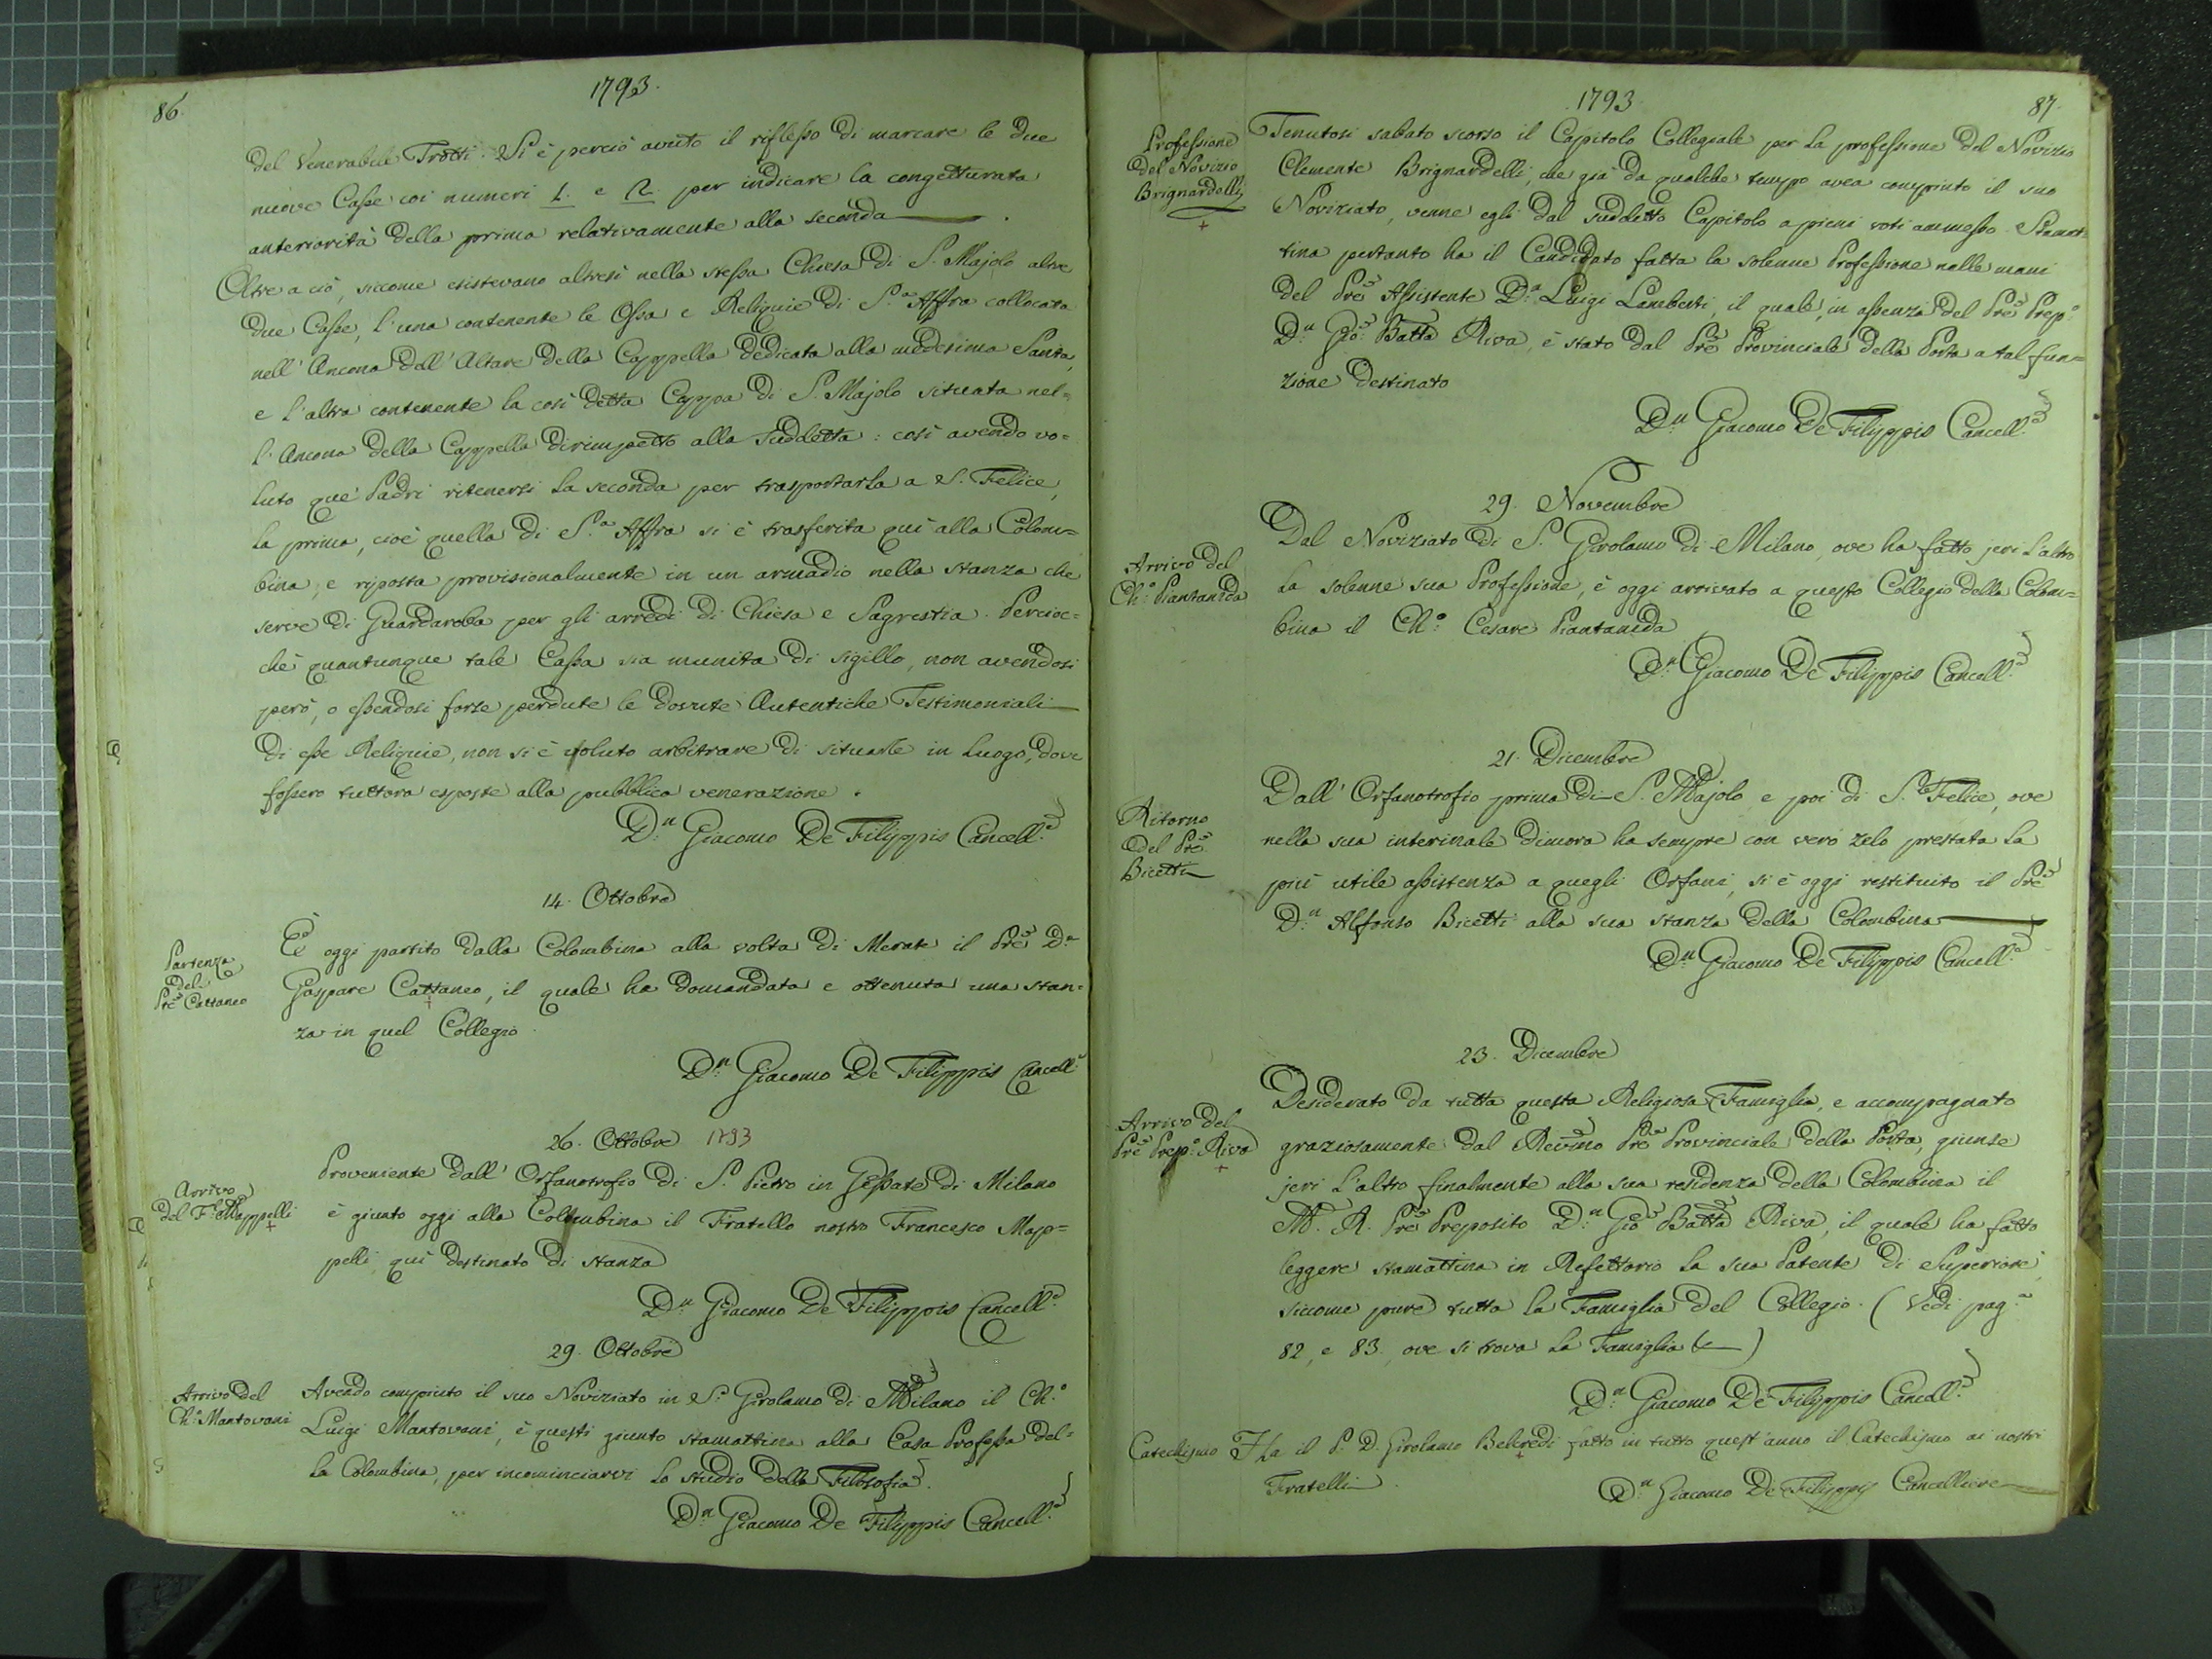 86.
1793.
del Venerabile Trotti. Si è perciò avuto il riflesso di marcare le due
nuove Casse coi numeri 1. e 2. per indicare la congetturata
anteriorità della prima relativamente alla seconda.
Oltre a ciò, siccome esistevano altresì nella stessa Chiesa di S. Majolo altre
due Casse, l'una contenente le Ossa e Reliquie di S.a Affra collocata
nell'Ancona dell'Altare della Cappella dedicata alla medesima Santa,
e l'altra contenente la così detta Cappa di S. Majolo situata nel=
l'Ancona della Cappella dirimpetto alla suddetta: così avendo vo=
luto que' Padri ritenersi la seconda per trasportarla a S. Felice,
la prima, cioè quella di S.a Affra si è trasferita quì alla Colom=
bina, e riposta provisionalmente in un armadio nella stanza che
serve di Guardaroba per gli arredi di Chiesa e Sagrestia. Percioc=
chè quantunque tale Cassa sia munita di sigillo, non avendosi
però, o essendosi forse perdute le dovute Autentiche Testimoniali
di esse Reliquie, non si è voluto arbitrare di situarle in luogo, dove
fossero tuttora esposte alla pubblica venerazione.
D.n Giacomo De Filippis Cancell.e
14. Ottobre
Partenza
del
Prē Cattaneo
È oggi partito dalla Colombina alla volta di Merate il Prē D.n
Gaspare Cattaneo, il quale ha domandata e ottenuta una stan=
za in quel Collegio.
D.n Giacomo De Filippis Cancell.e
26. Ottobre 1793
Arrivo
del F. Mappelli
Proveniente dall'Orfanotrofio di S. Pietro in Gessate di Milano
è giunto oggi alla Colombina il Fratello nostro Francesco Map=
pelli, quì destinato di stanza
D.n Giacomo De Filippis Cancell.e
29. Ottobre
Arrivo del
Ch.o Mantovani
Avendo compiuto il suo Noviziato in S. Girolamo di Milano il Ch.o
Luigi Mantovani, è questi giunto stamattina alla Casa Professa del=
la Colombina, per incominciarvi lo studio della Filosofia.
D.n Giacomo De Filippis Cancell.e
1793
87.
Professione
del Novizio
Brignardelli
Tenutosi sabato scorso il Capitolo Collegiale per la professione del Novizio
Clemente Brignardelli, che già da qualche tempo avea compiuto il suo
Noviziato, venne egli dal suddetto Capitolo a pieni voti ammesso. Stamat=
tina pertanto ha il Candidato fatta la solenne Professione nelle mani
del Prē Assistente D.n Luigi Lamberti, il quale, in assenza del Prē Prep.o
D.n Gio: Batta Riva, è stato dal Prē Provinciale della Porta a tal fun=
zione destinato
D.n Giacomo De Filippis Cancell.e
29. Novembre
Arrivo del
Ch.o Piantanida
Dal Noviziato di S. Girolamo di Milano, ove ha fatto jeri l'altro
la solenne sua Professione, è oggi arrivato a questo Collegio della Colom=
bina il Ch.o Cesare Piantanida
D.n Giacomo De Filippis Cancell.e
21. Dicembre
Ritorno
del Prē
Bicetti
Dall'Orfanotrofio prima di S. Majolo e poi di S. Felice, ove
nella sua interinale dimora ha sempre con vero zelo prestata la
più utile assistenza a quegli Orfani, si è oggi restituito il Prē
D.n Alfonso Bicetti alla sua stanza della Colombina
D.n Giacomo De Filippis Cancell.e
23. Dicembre
Arrivo del
Prē Prep.o Riva
Desiderato da tutta questa Religiosa Famiglia, e accompagnato
graziosamente dal Revmo Prē Provinciale della Porta, giunse
jeri l'altro finalmente alla sua residenza della Colombina il
M. R. Prē Preposito D.n Gio Batta Riva, il quale ha fatto
leggere stamattina in Refettorio la sua Patente di Superiore,
siccome pure tutta la Famiglia del Collegio. (Vedi pag.e
82, e 83. ove si trova la Famiglia &)
D.n Giacomo De Filippis Cancell.e
Catechismo
Ha il P. D. Girolamo Belcredi fatto in tutto quest'anno il Catechismo ai nostri
Fratelli.
D.n Giacomo De Filippis Cancelliere